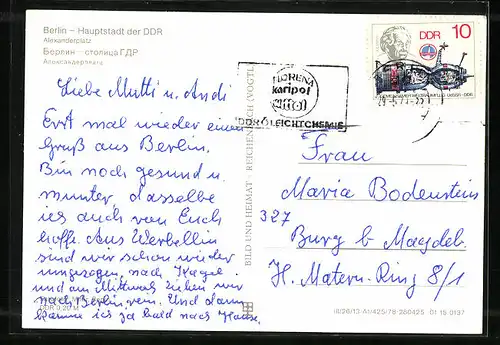 Berlin – Hauptstadt der DDR
Alexanderplatz
Берлин – столица ГДР
Александерплатц
Liebe Mutti u. Andi
Erst mal wieder einen
Gruß aus Berlin.
Bin noch gesund u.
munter, dasselbe
ich auch von Euch
hoffe. Aus Werbellin
sind wir schon wieder
umgezogen, nach Kagel
und am Mittwoch ziehen wir
nach Berlin rein. Und dann
komme ich ja bald nach Hause.
BILD UND HEIMAT REICHENBACH (VOGTL
FLORENA
karipol
DDR LEICHTCHEMIE
DDR 10
Frau
Maria Bodenstein
327
Burg b Magdeb.
H. Matern-Ring 8/1
IV/26/13 A1/425/78 280425 01 15 0137